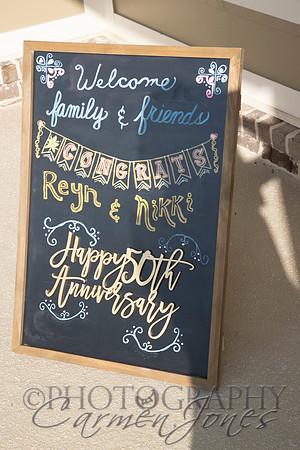 Welcome
family & friends
CONGRATS
Reyn & Nikki
Happy 50th
Anniversary
©PHOTOGRAPHY
Carmen Jones